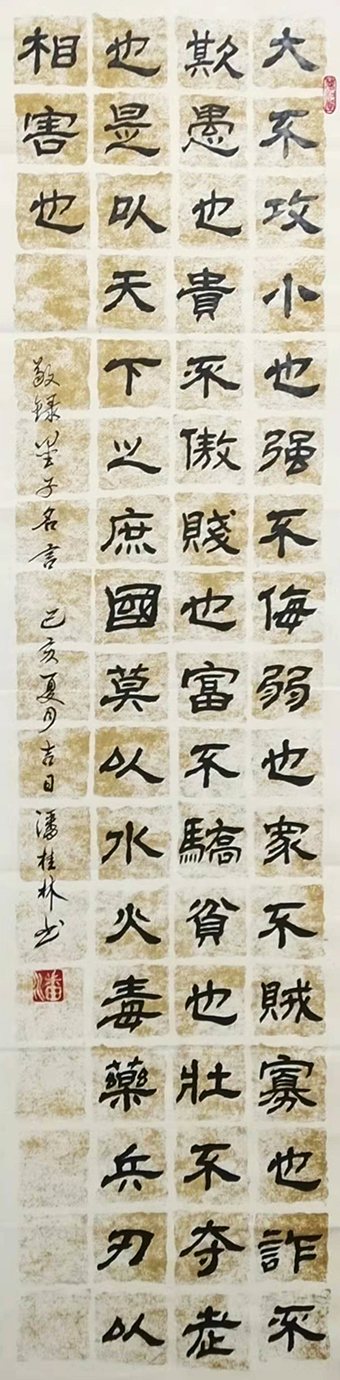 大不攻小也强不侮弱也衆不賊寡也詐不
欺愚也貴不傲賤也富不驕貧也壯不夺老
也是以天下之庶國莫以水火毒藥兵刃以
相害也
敬錄墨子名言 己亥夏月吉日 潘桂林书
潘